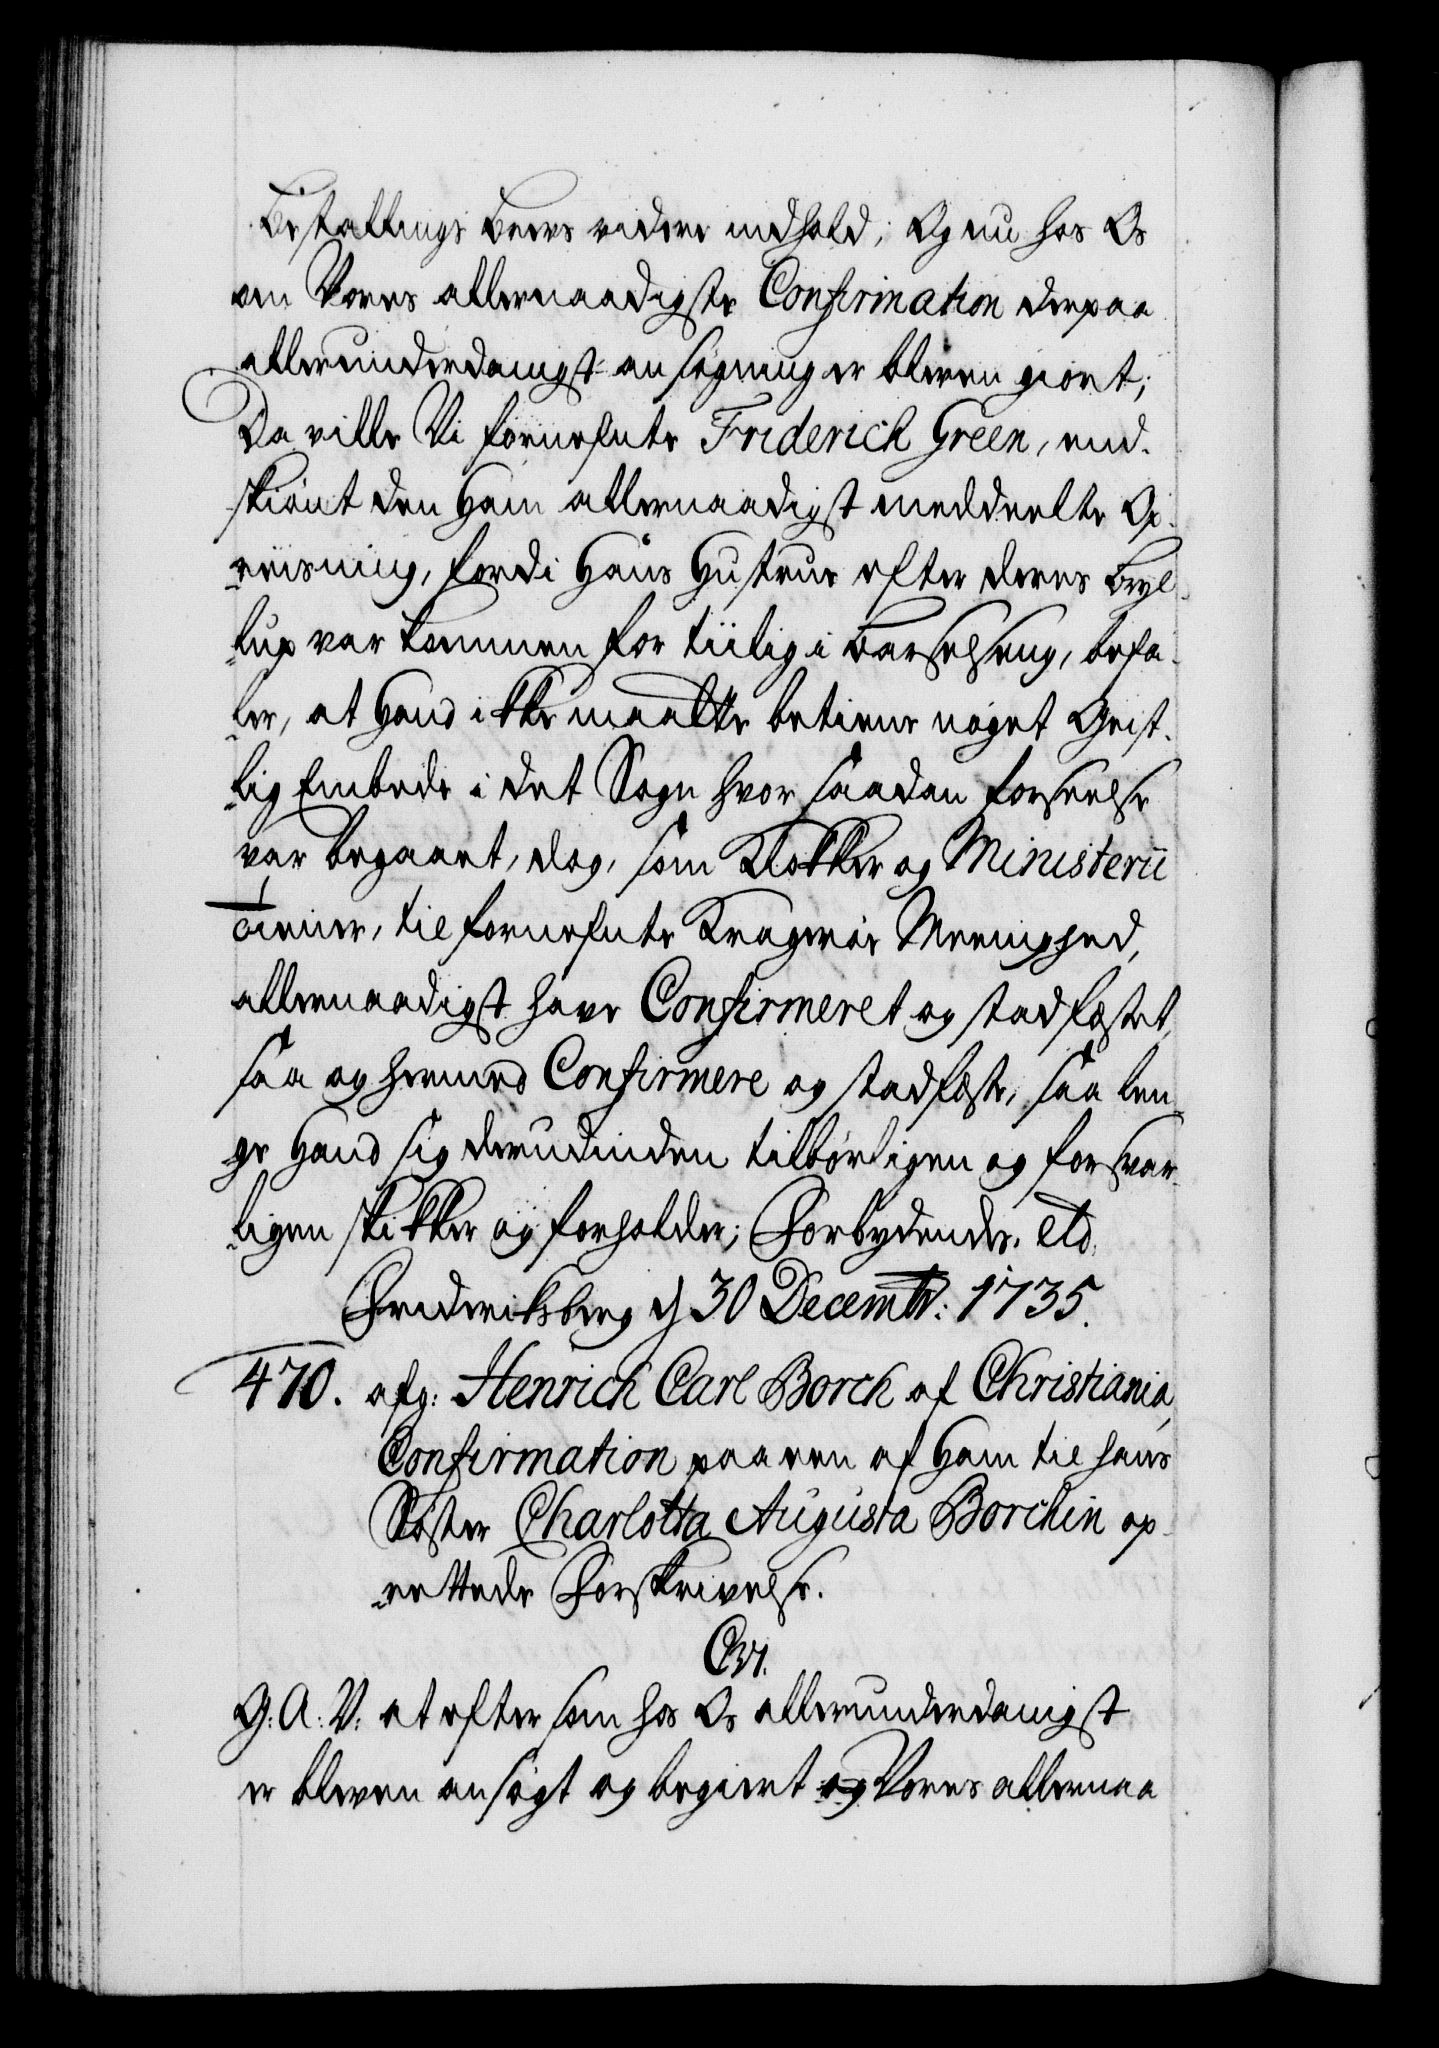 Bestallings Brevs videre indhold; Og nu hos Os
om Vores allernaadigste Confirmation derpaa
allerunderdanigst ansøgning er bleven giort;
Da ville Vi fornefnte Friderich Green, end-
skiønt den Ham allernaadigst meddeelte Op-
reisning, fordi Hans Hustrue efter deres Bryl-
lup var kommen for tiilig i Barselseng, befa-
ler, at Hand ikke maatte betiene noget Geist-
lig Embede i det Sogn hvor saadan forseelse
var begaaet, dog, som Klokker og Ministerii
tiener, til fornefnte Kragerøe Meenighed,
allernaadigst have Confirmeret og stadfæstet,
saa og hermed Confirmere og stadfæste, saa len-
ge Hand sig derudinden tilbørligen og forsvar-
ligen skikker og forholder; Forbydendes. etc.
Frideriksberg d 30 Decembr: 1735.
470. afg: Henrich Carl Borch af Christiania,
Confirmation paa een af Ham til hans
Søster Charlotta Augusta Borchin op-
rettede Forskrivelse.
C. VI.
G: A: V: at eftersom hos Os allerunderdanigst
er bleven ansøgt og begiert og Vores allernaa